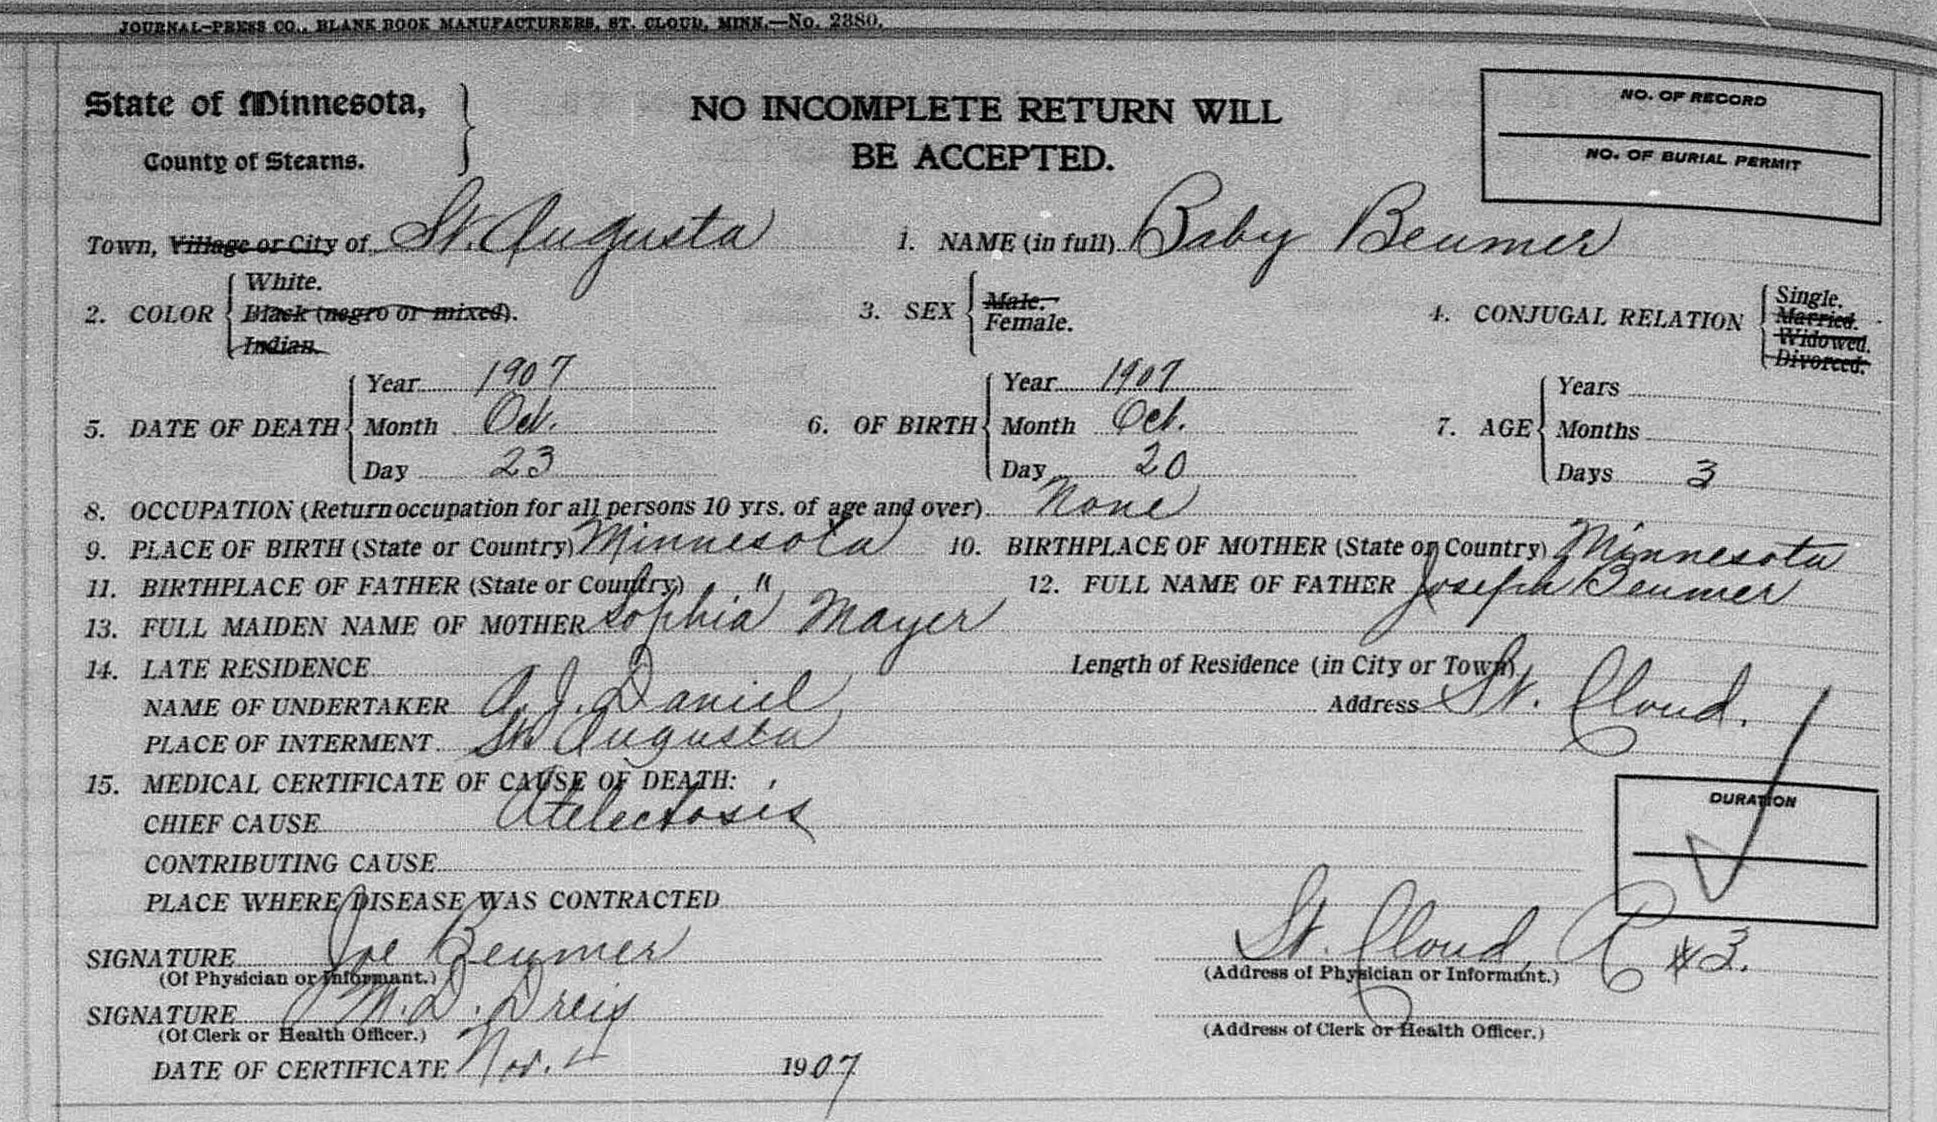 JOURNAL-PRESS CO., BLANK BOOK MANUFACTURERS, ST. CLOUD, MINN.—No. 2380.
State of Minnesota,
County of Stearns.
NO INCOMPLETE RETURN WILL
BE ACCEPTED.
NO. OF RECORD
NO. OF BURIAL PERMIT
Town, Village or City of St. Augusta 1. NAME (in full) Baby Beumer
2. COLOR White. Black (negro or mixed). Indian. 3. SEX Male. Female. 4. CONJUGAL RELATION Single. Married. Widowed. Divorced.
5. DATE OF DEATH Year 1907 Month Oct. Day 23 6. OF BIRTH Year 1907 Month Oct. Day 20 7. AGE Years Months Days 3
8. OCCUPATION (Return occupation for all persons 10 yrs. of age and over) None
9. PLACE OF BIRTH (State or Country) Minnesota 10. BIRTHPLACE OF MOTHER (State or Country) Minnesota
11. BIRTHPLACE OF FATHER (State or Country) " 12. FULL NAME OF FATHER Joseph Beumer
13. FULL MAIDEN NAME OF MOTHER Sophia Mayer
14. LATE RESIDENCE Length of Residence (in City or Town)
NAME OF UNDERTAKER A. J. Daniel Address St. Cloud.
PLACE OF INTERMENT St. Augusta
15. MEDICAL CERTIFICATE OF CAUSE OF DEATH:
CHIEF CAUSE Atelectosis
DURATION
CONTRIBUTING CAUSE
PLACE WHERE DISEASE WAS CONTRACTED
SIGNATURE Joe Beumer St. Cloud, R #3.
(Of Physician or Informant.) (Address of Physician or Informant.)
SIGNATURE M. D.
(Of Clerk or Health Officer.) (Address of Clerk or Health Officer.)
DATE OF CERTIFICATE Nov. 4 1907